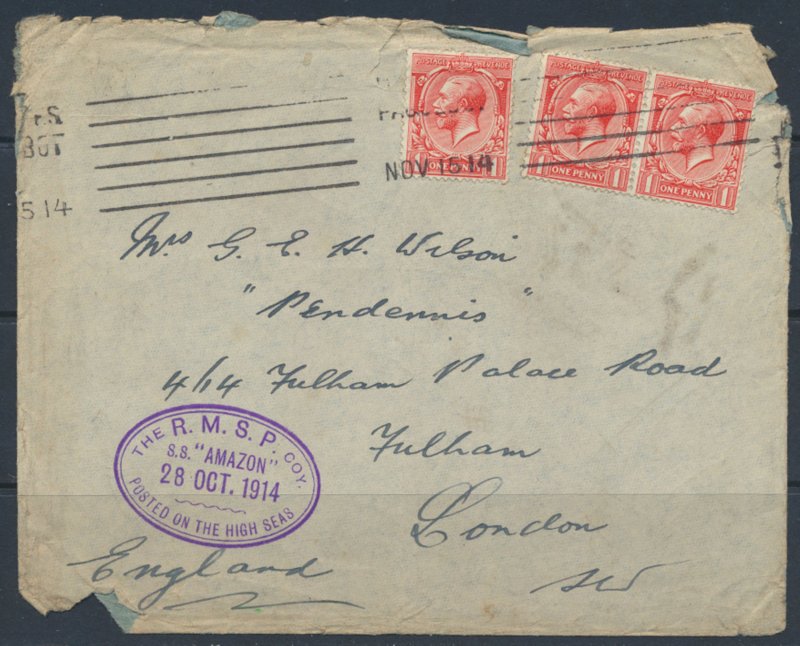 POSTAGE REVENUE
ONE PENNY
POSTAGE REVENUE
1 ONE PENNY 1
POSTAGE REVENUE
1 ONE PENNY 1
BOT
5 14
NOV 15 14
Mrs G. E. H. Wilson
"Pendennis"
4/14 Fulham Palace Road
Fulham
London
SW
England
THE R. M. S. P. COY.
S.S. "AMAZON"
28 OCT. 1914
POSTED ON THE HIGH SEAS